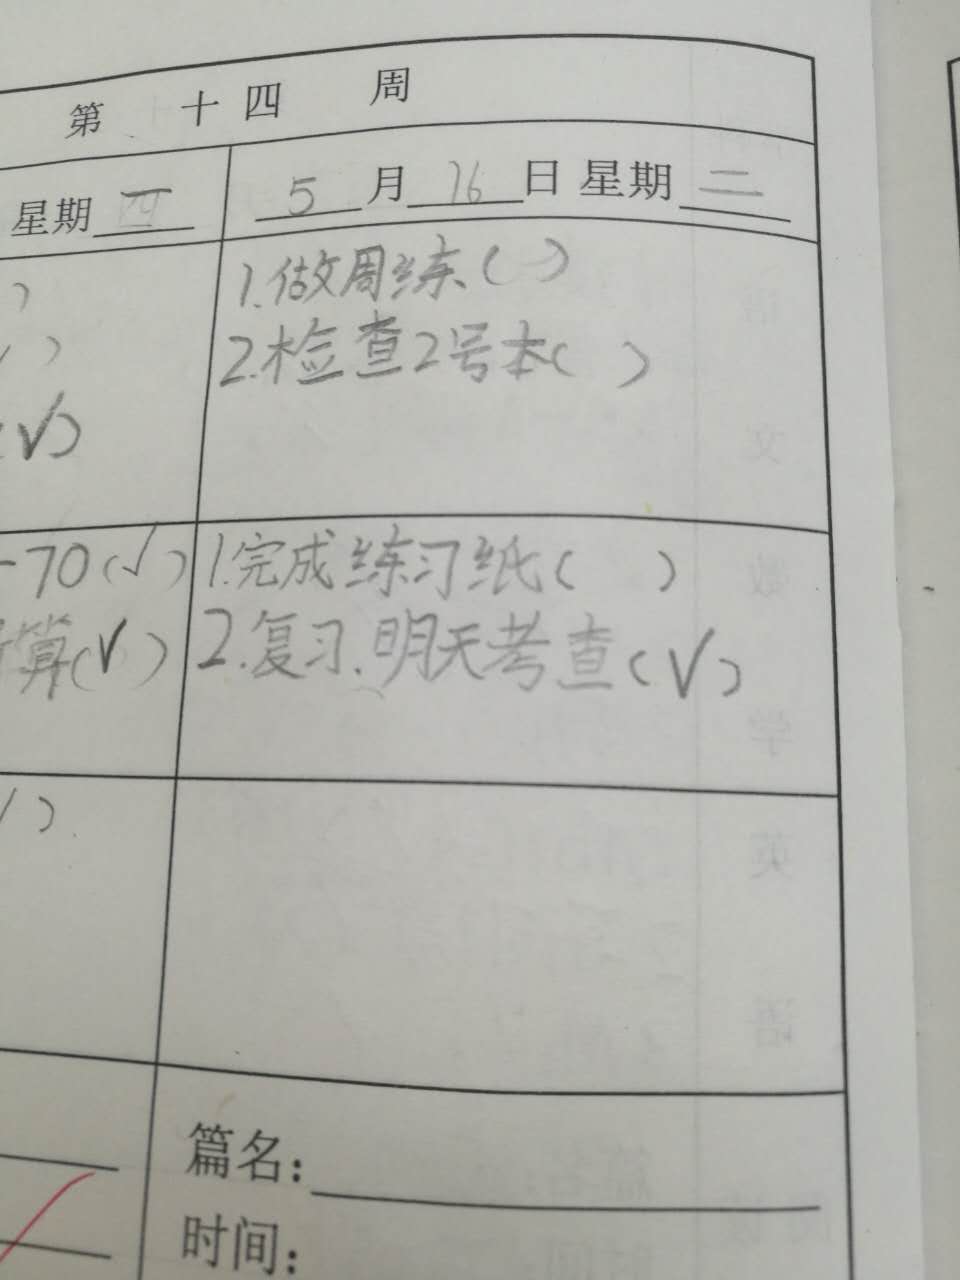 第 十四 周
星期 四
5月16日 星期二
)
1.做周练( )
( )
2.检查2号本( )
(√)
-70(√)
1.完成练习纸( )
算(√)
2.复习.明天考查(√)
√)
篇名:
时间: